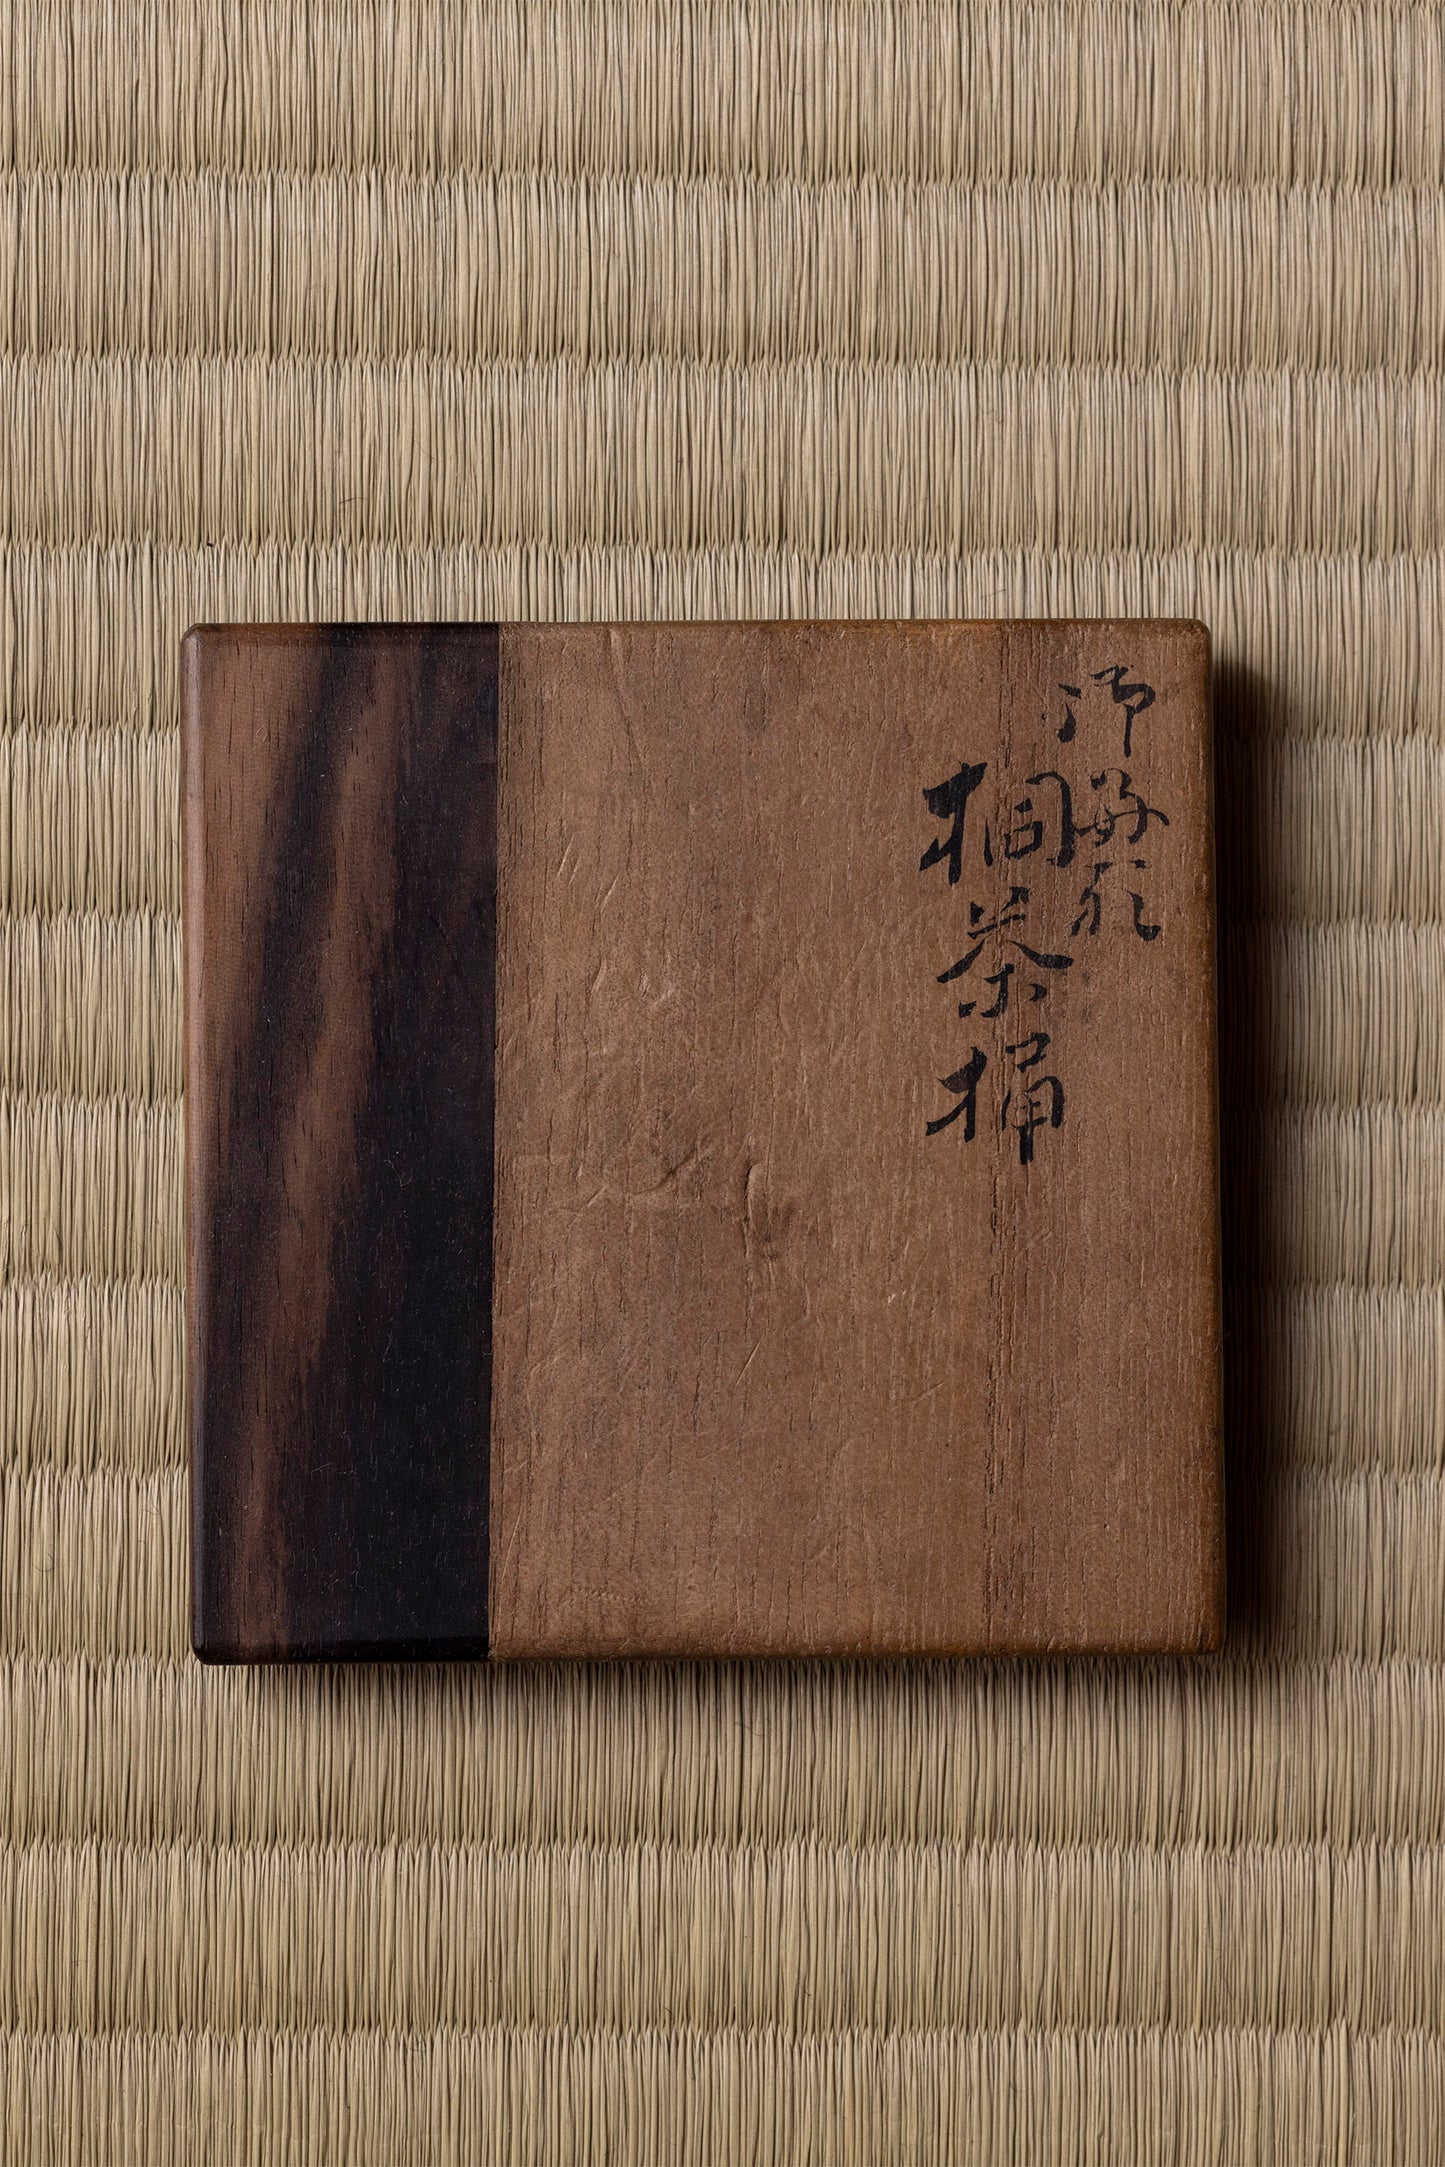 御好形
桐茶桶